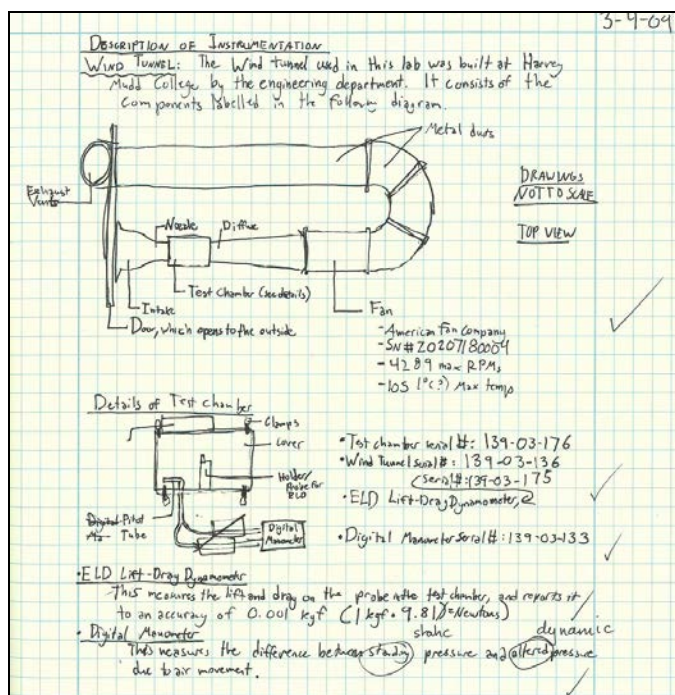 3-4-09
DESCRIPTION OF INSTRUMENTATION
WIND TUNNEL: The Wind tunnel used in this lab was built at Harvey
Mudd College by the engineering department. It consists of the
Components labelled in the following diagram.
Metal ducts
Exhaust
Vents
DRAWINGS
NOT TO SCALE
TOP VIEW
Nozzle
Diffuse
Test Chamber (see details)
Intake
Door, which opens to the outside
Fan
-American Fan Company
-SN# 20207180004
-4289 max RPMs
-105 1°(?) Max temp
Details of Test chamber
Clamps
Cover
Holder/
Probe for
ELD
Pitot
Tube
Digital
Manometer
• Test chamber serial #: 139-03-176
• Wind Tunnel serial #: 139-03-136
(serial #: 139-03-175
• ELD Lift-Drag Dynamometer,
• Digital Manometer Serial #: 139-03-133
• ELD Lift-Drag Dynamometer
This measures the lift and drag on the probe in the test chamber, and reports it
to an accuracy of 0.001 kgf (1 kgf • 9.81 = Newtons)
static dynamic
• Digital Manometer
This measures the difference between standing pressure and altered pressure
due to air movement.